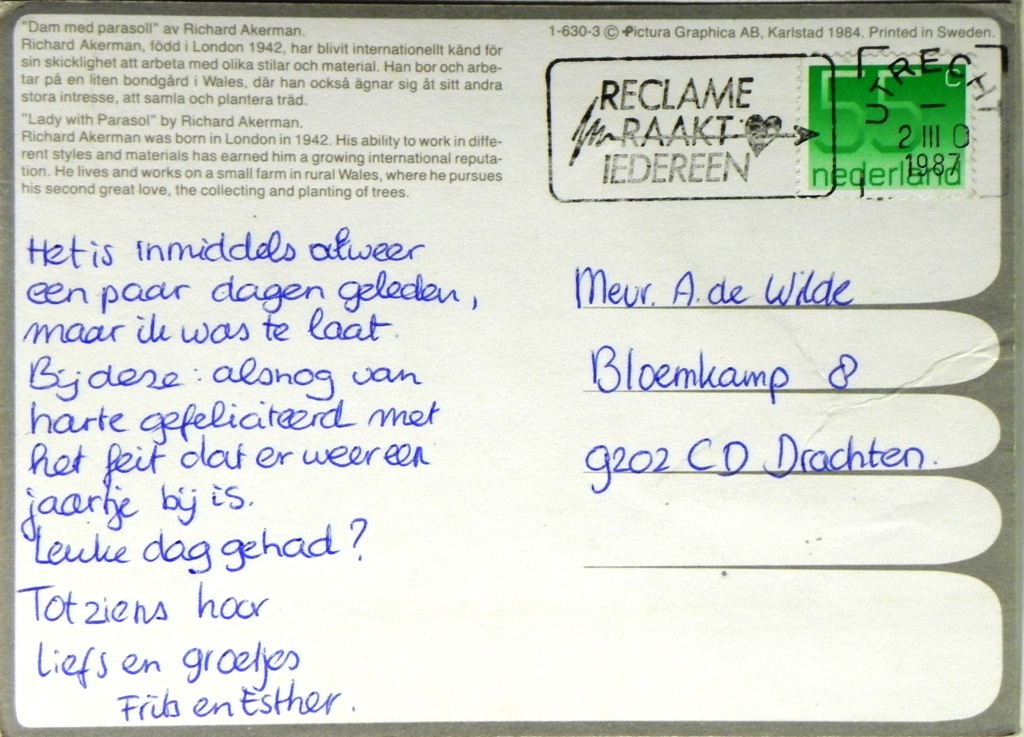 "Dam med parasoll" av Richard Akerman.
Richard Akerman, född i London 1942, har blivit internationellt känd för
sin skicklighet att arbeta med olika stilar och material. Han bor och arbe-
tar på en liten bondgård i Wales, där han också ägnar sig åt sitt andra
stora intresse, att samla och plantera träd.
"Lady with Parasol" by Richard Akerman.
Richard Akerman was born in London in 1942. His ability to work in diffe-
rent styles and materials has earned him a growing international reputa-
tion. He lives and works on a small farm in rural Wales, where he pursues
his second great love, the collecting and planting of trees.
1-630-3 © Pictura Graphica AB, Karlstad 1984. Printed in Sweden.
RECLAME
RAAKT
IEDEREEN
55
nederland
UTRECHT
2 III
1987
Het is inmiddels alweer
een paar dagen geleden,
maar ik was te laat.
Bij deze: alsnog van
harte gefeliciteerd met
het feit dat er weer een
jaartje bij is.
Leuke dag gehad?
Tot ziens hoor
Liefs en groetjes
Frits en Esther.
Mevr. A. de Wilde
Bloemkamp 8
9202 CD Drachten.